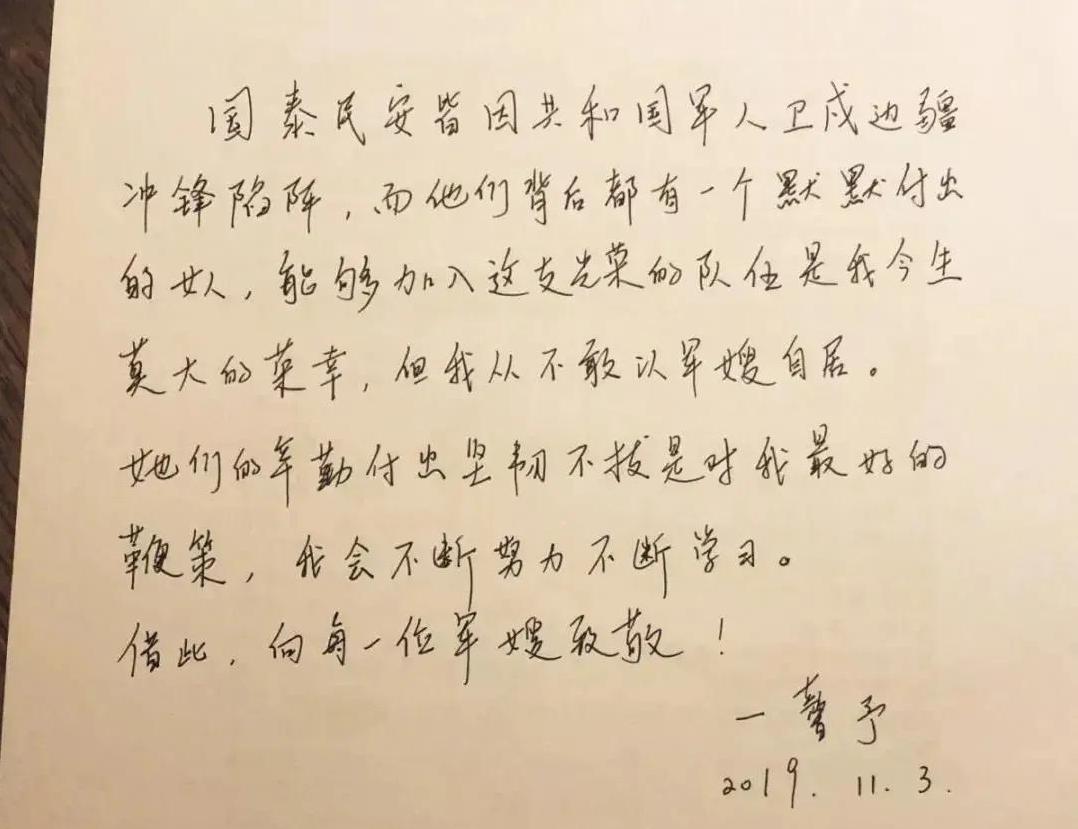 国泰民安皆因共和国军人卫戍边疆
冲锋陷阵，而他们背后都有一个默默付出
的女人，能够加入这支光荣的队伍是我今生
莫大的荣幸，但我从不敢以军嫂自居。
她们的辛勤付出坚韧不拔是对我最好的
鞭策，我会不断努力不断学习。
借此，向每一位军嫂致敬！
一瞽予
2019.11.3.